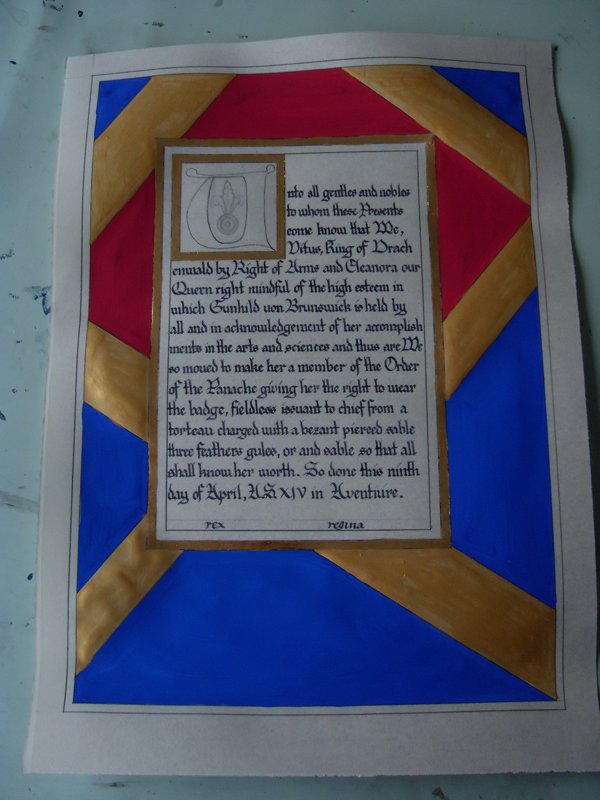 Unto all gentles and nobles
to whom these Presents
come know that We,
Vitus, King of Drach
enwald by Right of Arms and Eleanora our
Queen right mindful of the high esteem in
which Gunhild von Brunswick is held by
all and in acknowledgement of her accomplish
ments in the arts and sciences and thus are We
so moved to make her a member of the Order
of the Panache giving her the right to wear
the badge, fieldless issuant to chief from a
torteau charged with a bezant pierced sable
three feathers gules, or and sable so that all
shall know her worth. So done this ninth
day of April, A.S. XLV in Aventiure.
rex regina